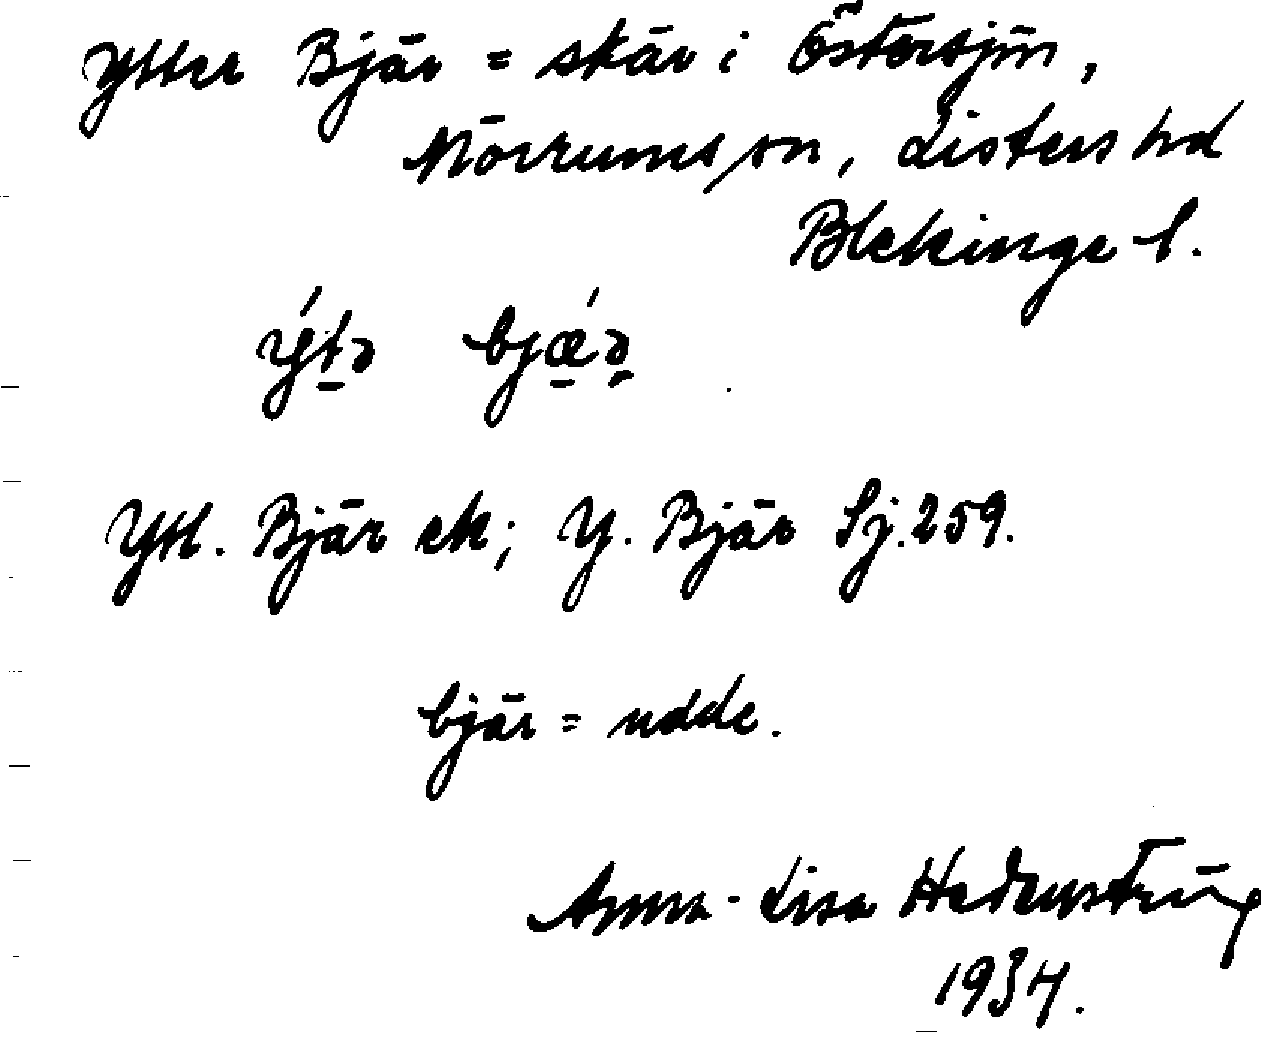 Ytter Bjär = skär i Östersjön,
Mörrums sn, Listers hd
Blekinge l.
ýtə bjǽ̠ə̠
Ytt. Bjär ek; Y. Bjär Sj. 259.
bjär = udde.
Anna-Lisa Hedenström
1934.